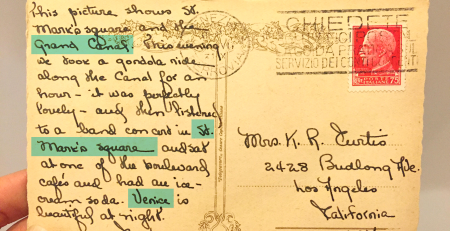 This picture shows St.
Mark's square and the
Grand Canal. This evening
we took a gondola ride
along the Canal for an
hour - it was perfectly
lovely - and then listened
to a band concert in St.
Mark's square and sat
at one of the boulevard
cafés and had an ice-
cream soda. Venice is
beautiful at night.
CHIEDETE
SERVIZIO DEI CONTI CORRENTI
Mrs. K. R. Curtis
2428 Budlong Ave.
Los Angeles
California